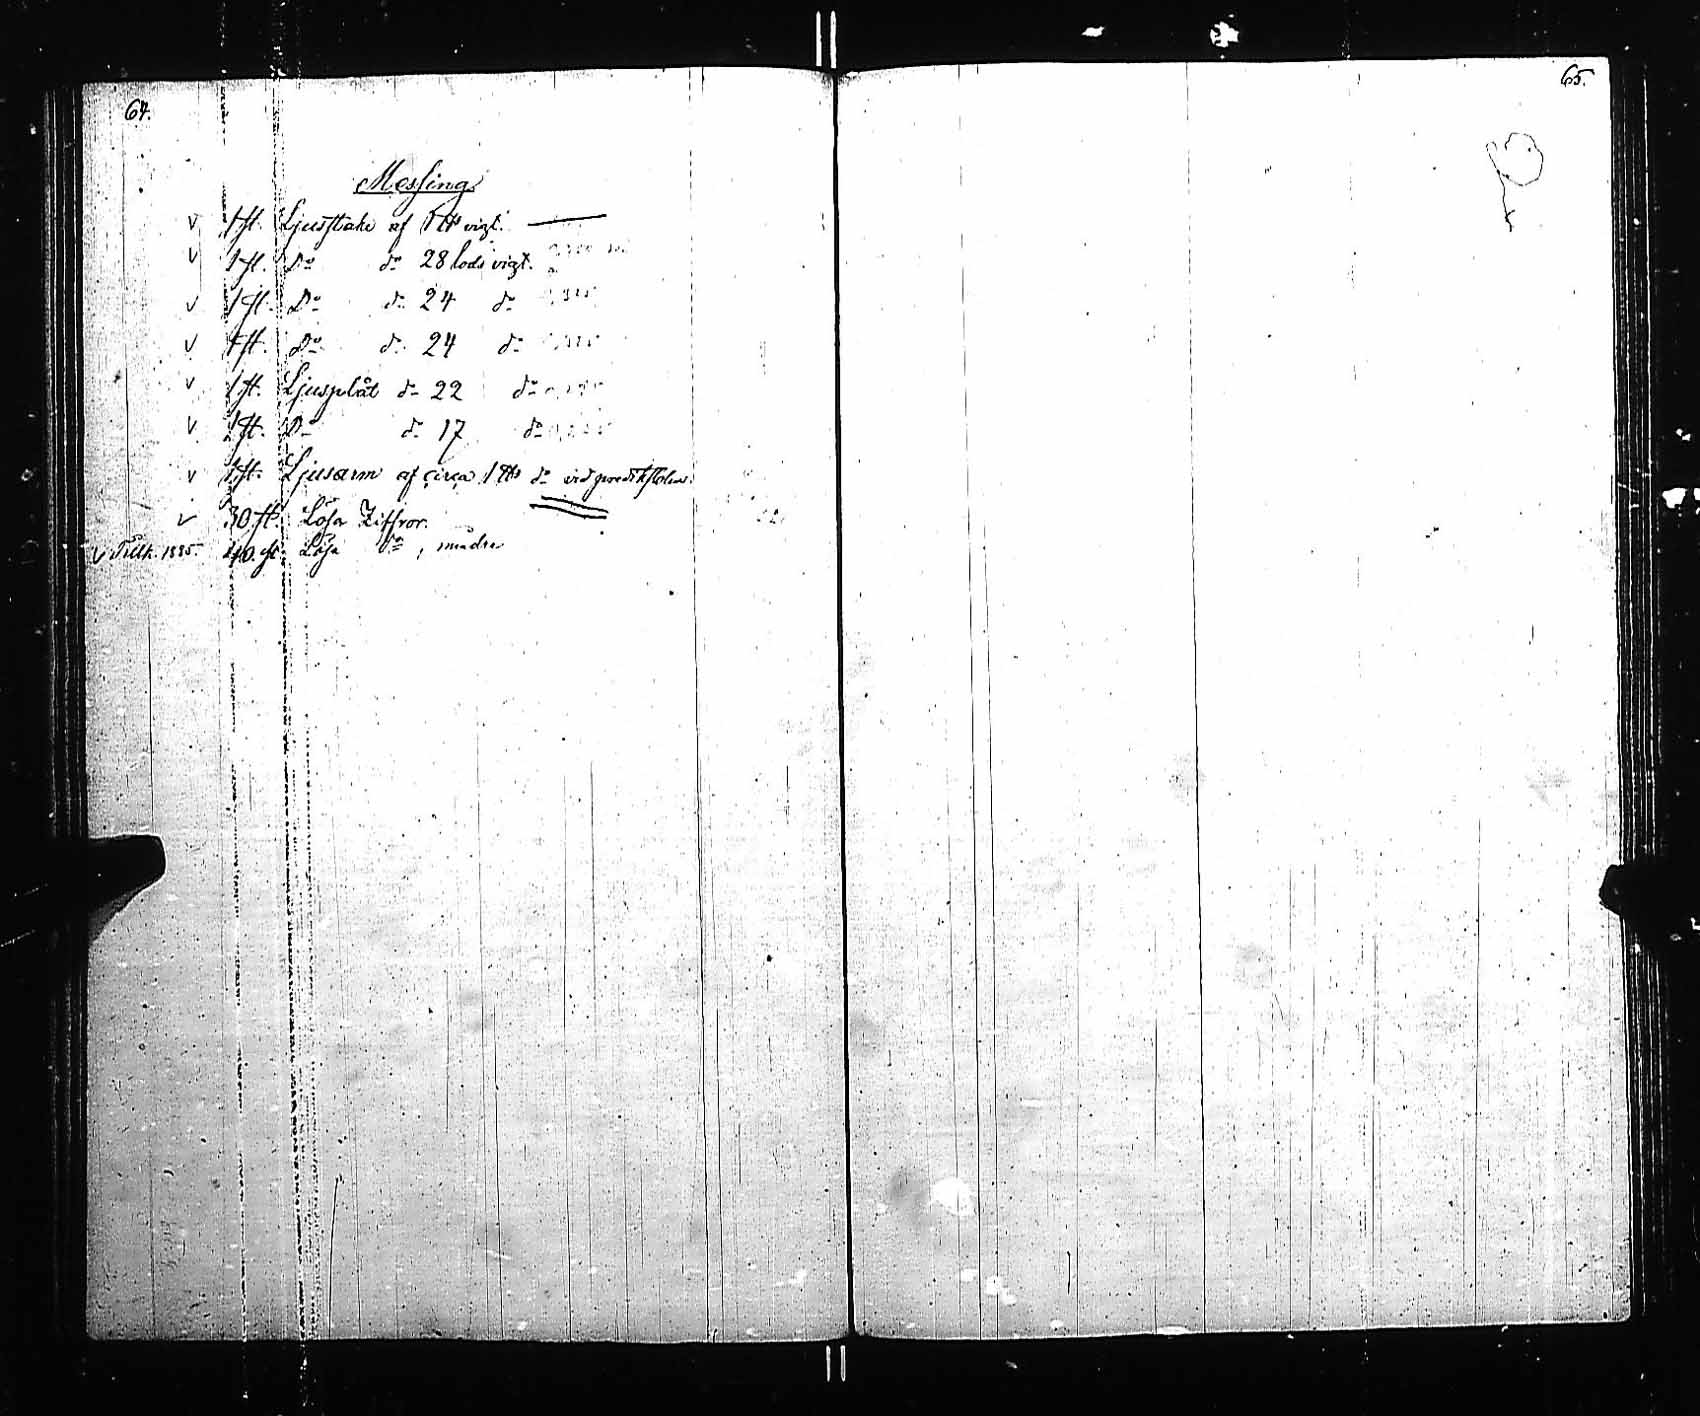 64.
Messing
v 1 st. Ljusstake af 1 ℔ vigt.
v 1 st. Do do 28 lods vigt.
v 1 st. Do do 24 do
v 1 st. Do do 24 do
v 1 st. Ljusplåt do 22 do
v 1 st. Do do 17 do
v 1 st. Ljusarm af circa 1 ℔ do vid predikstolen.
v 30 st. Lösa Ziffror.
v Tillk. 1885. 40 st. Lösa do, mindre
65.